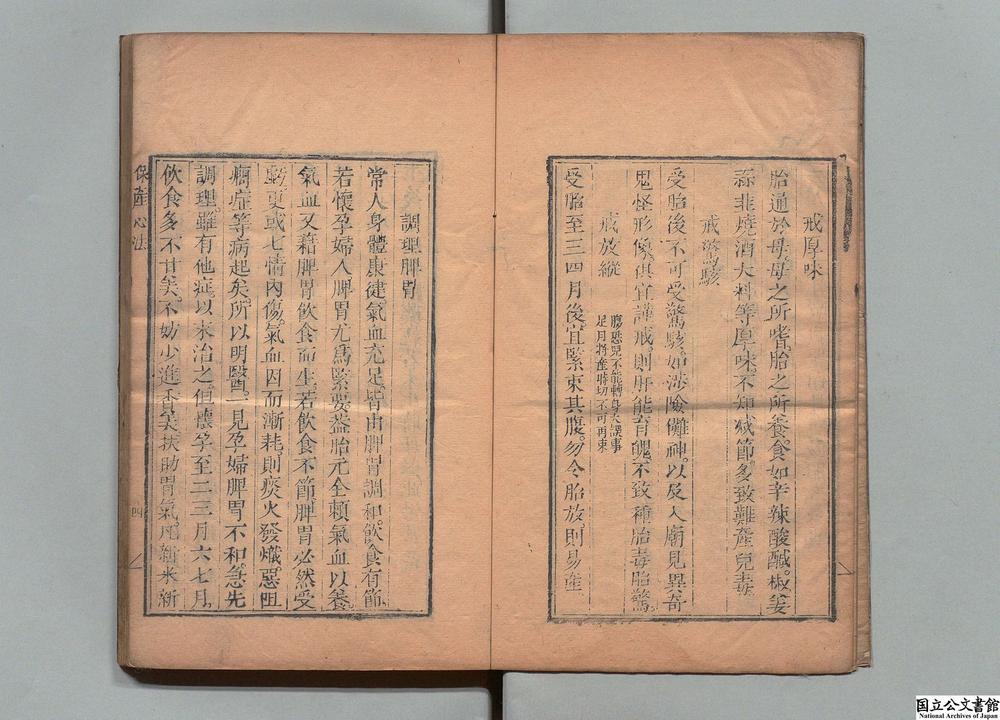 戒厚味
胎通於母。母之所嗜。胎之所養。食如辛辣酸醎。椒姜
蒜韭燒酒大料等厚味。不知减節。多致難產兒毒。
戒驚駭
受胎後不可受驚駭。如涉險儺神。以及入廟見異奇
鬼怪形像。俱宜謹戒。則肝能育魄。不致種胎毒胎驚。
戒放縱
受胎至三四月後。宜緊束其腹。勿令胎放則易產
足月將產時切不可再束
腸恐兒不能轉身大誤事
調理脾胃
常人身體康健氣血充足。皆由脾胃調和。飲食有節。
若懷孕婦人脾胃尤爲緊要。葢胎元全賴氣血以養。
氣血又藉脾胃飲食而生。若飲食不節。脾胃必然受
虧。更或七情內傷。氣血因而漸耗。則痰火發熾。惡阻
癇症等病起矣。所以明醫一見孕婦脾胃不和。急先
調理。雖有他症。以末治之。但懷孕至二三月六七月。
飲食多不甘美。不妙少進香美扶助胃氣。凡新米新
保產心法
四
国立公文書館
National Archives of Japan